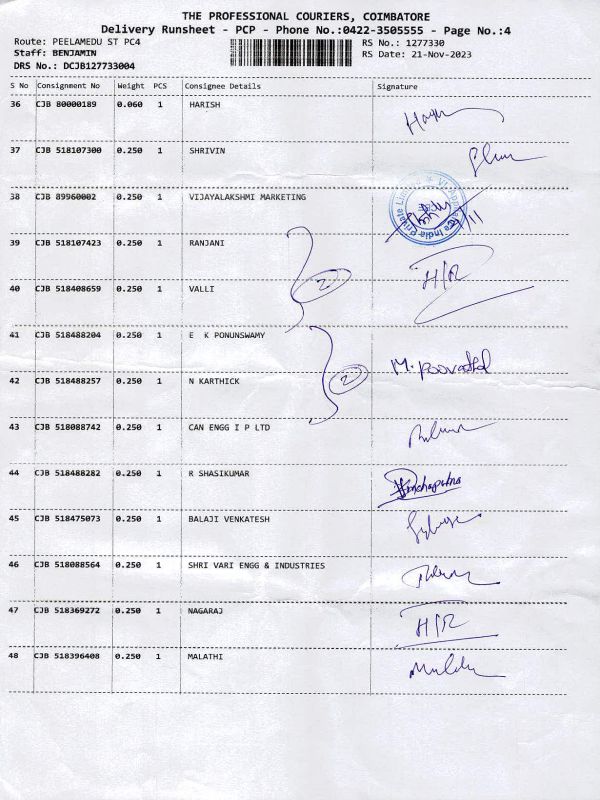 THE PROFESSIONAL COURIERS, COIMBATORE
Delivery Runsheet - PCP - Phone No.:0422-3505555 - Page No.:4
Route: PEELAMEDU ST PC4 RS No.: 1277330
Staff: BENJAMIN RS Date: 21-Nov-2023
DRS No.: DCJB127733004
S No Consignment No Weight PCS Consignee Details Signature
36 CJB 80000189 0.060 1 HARISH
37 CJB 518107300 0.250 1 SHRIVIN
38 CJB 89960002 0.250 1 VIJAYALAKSHMI MARKETING
39 CJB 518107423 0.250 1 RANJANI H/R
2
40 CJB 518408659 0.250 1 VALLI
41 CJB 518488204 0.250 1 E K PONUNSWAMY
M.
2
42 CJB 518488257 0.250 1 N KARTHICK
43 CJB 518088742 0.250 1 CAN ENGG I P LTD
44 CJB 518488282 0.250 1 R SHASIKUMAR
45 CJB 518475073 0.250 1 BALAJI VENKATESH
46 CJB 518088564 0.250 1 SHRI VARI ENGG & INDUSTRIES
47 CJB 518369272 0.250 1 NAGARAJ H/R
48 CJB 518396408 0.250 1 MALATHI